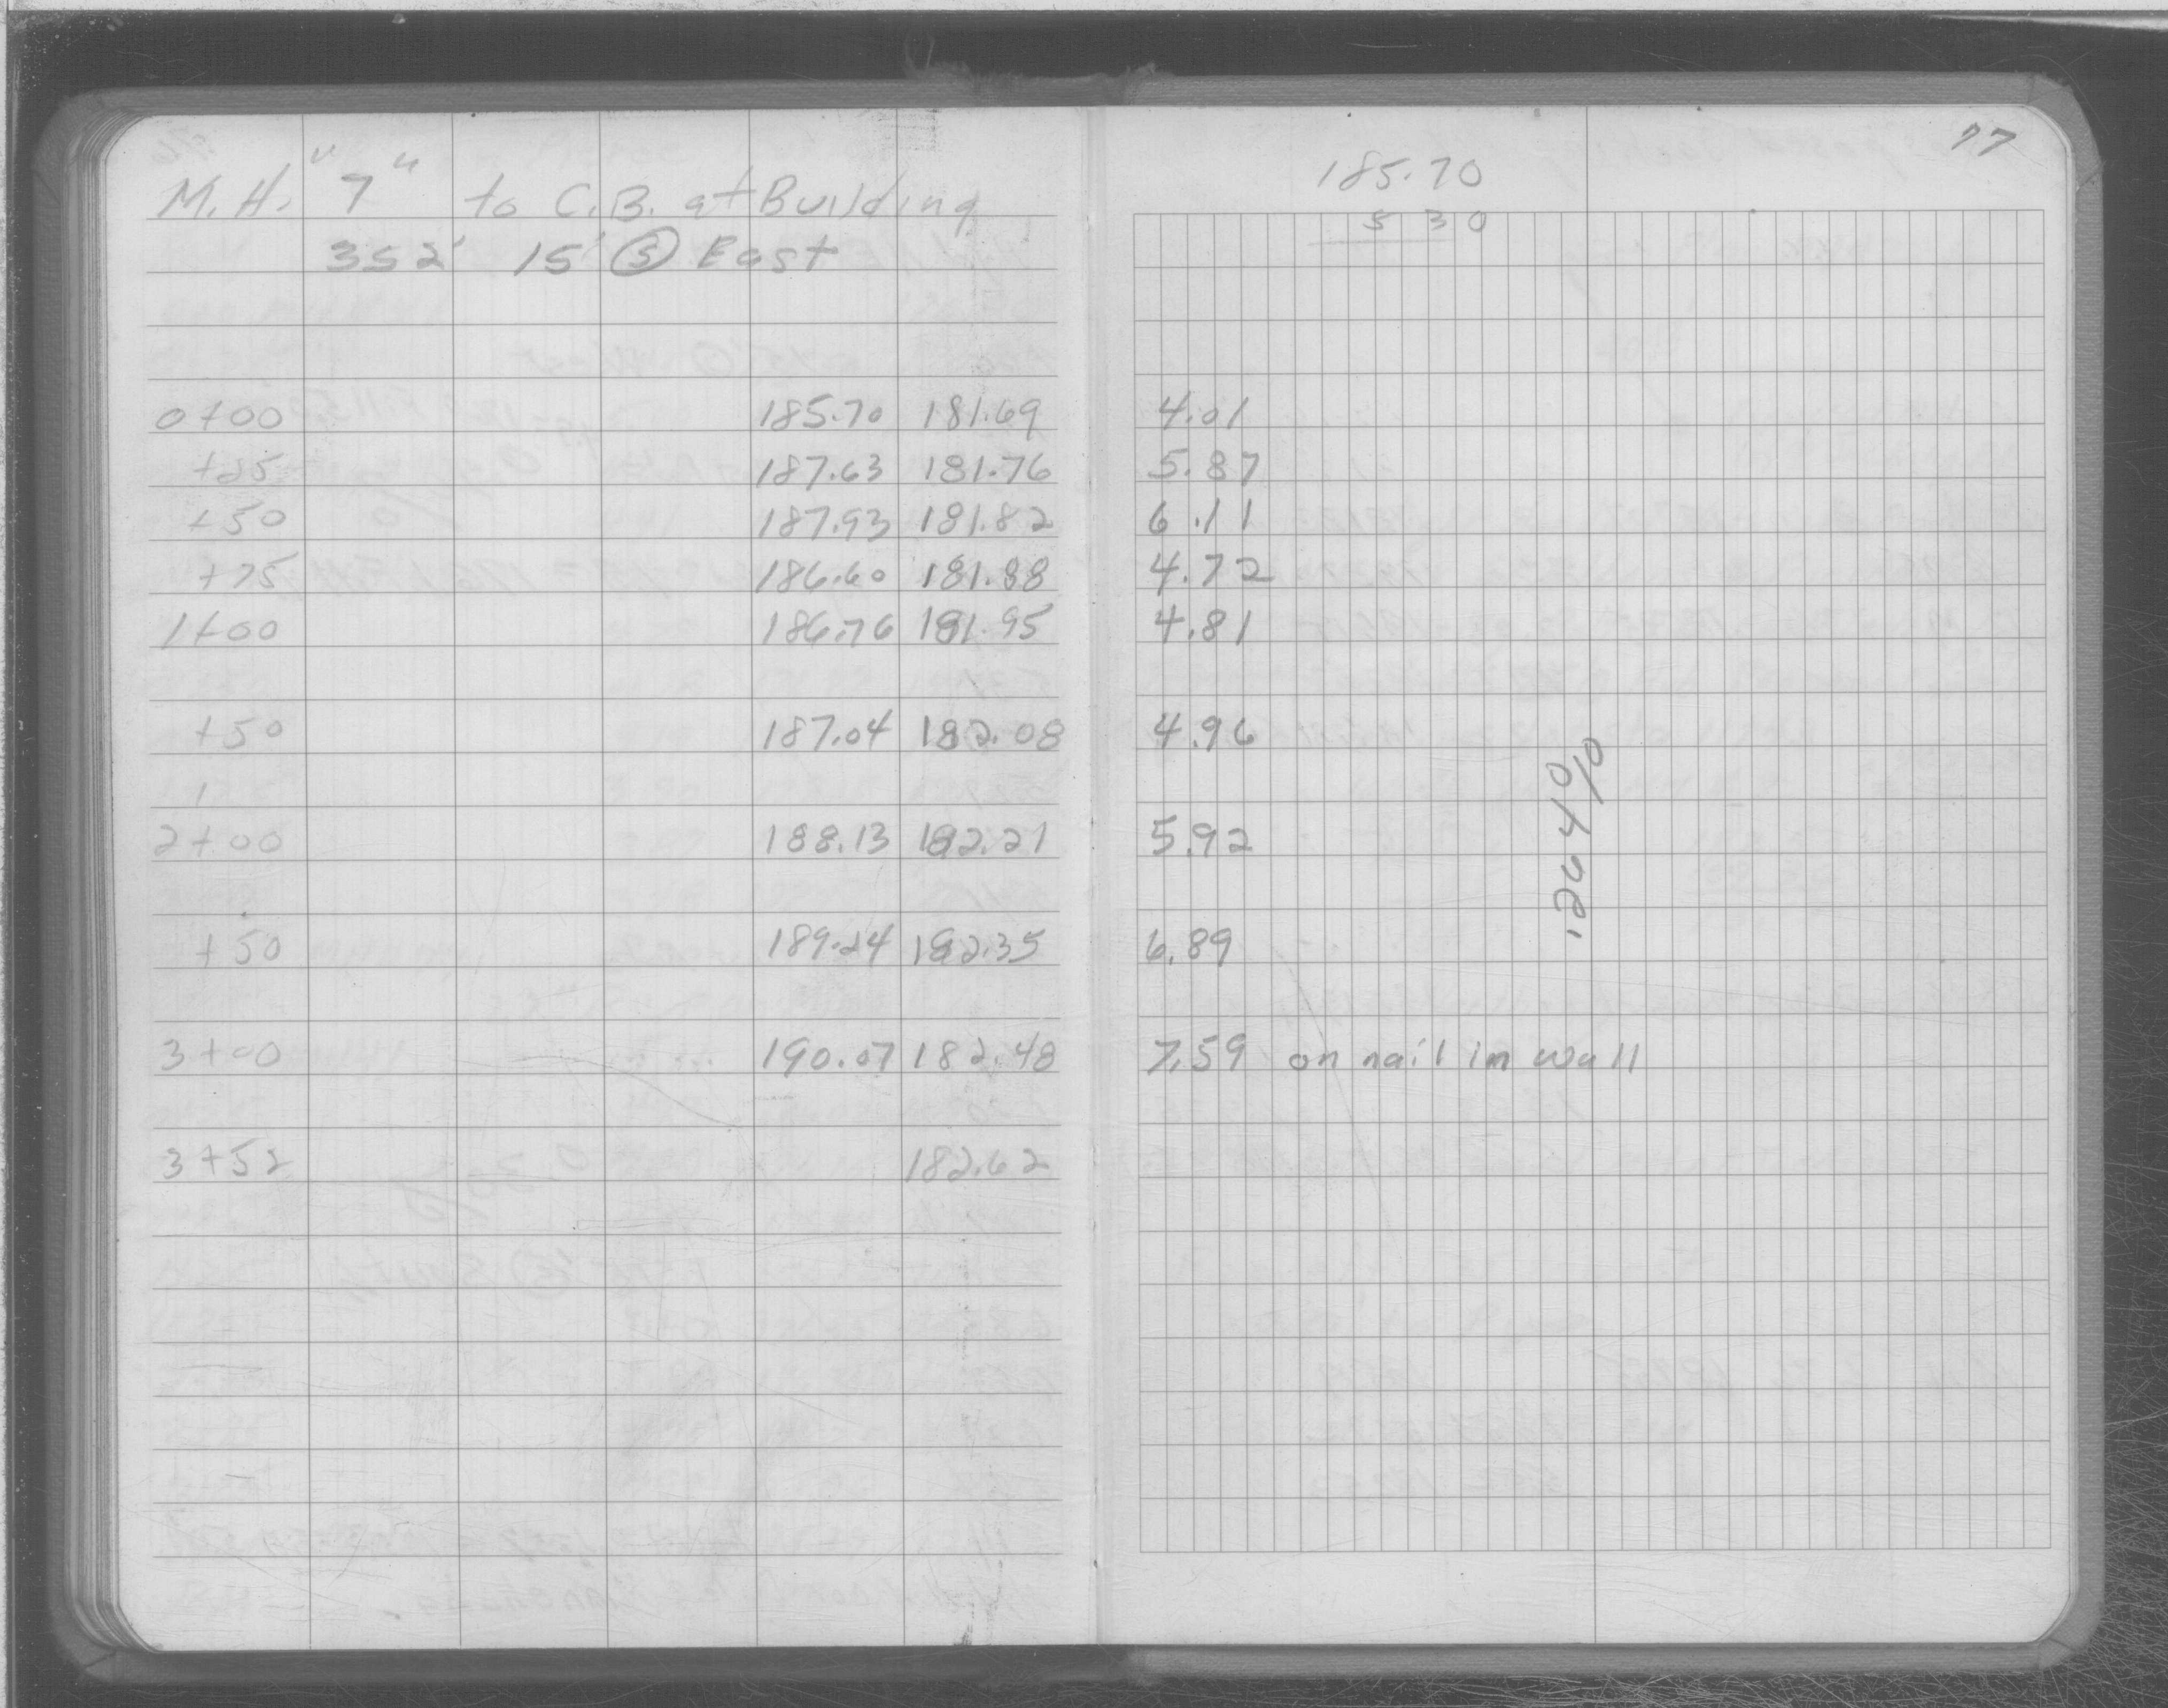 M.H. "7" to C.B. at Building
352' 15' Ⓢ East
0+00 185.70 181.69
+25 187.63 181.76
+50 187.93 181.82
+75 186.60 181.88
1+00 186.76 181.95
+50 187.04 182.08
2+00 188.13 182.21
+50 189.24 182.35
3+00 190.07 182.48
3+52 182.62
77
185.70
5 30
4.01
5.87
6.11
4.72
4.81
4.96
5.92
6.89
7.59 on nail in wall
.264%